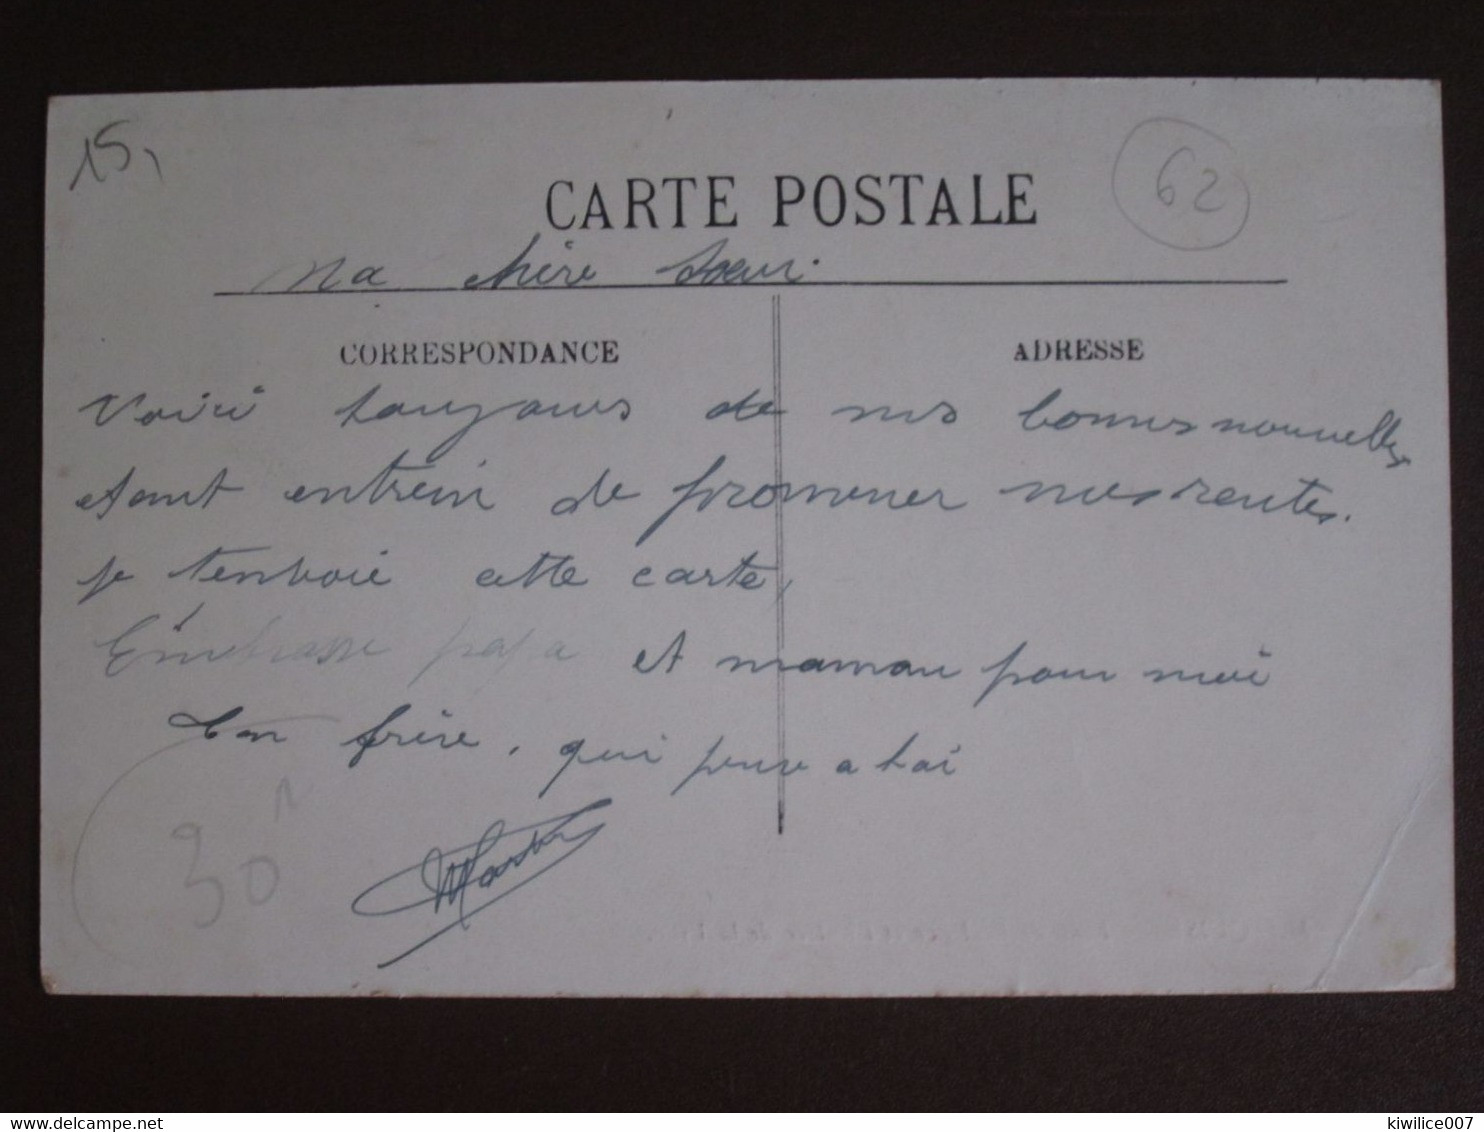 15,
62
CARTE POSTALE
Ma chère soeur.
CORRESPONDANCE
ADRESSE
Voici toujours de mes bonnes nouvelles
etant entrein de promener mes rentes.
je tenvoie cette carte,
Embrasse papa et maman pour moi
Ton frère, qui pense a toi
30
kiwilice007